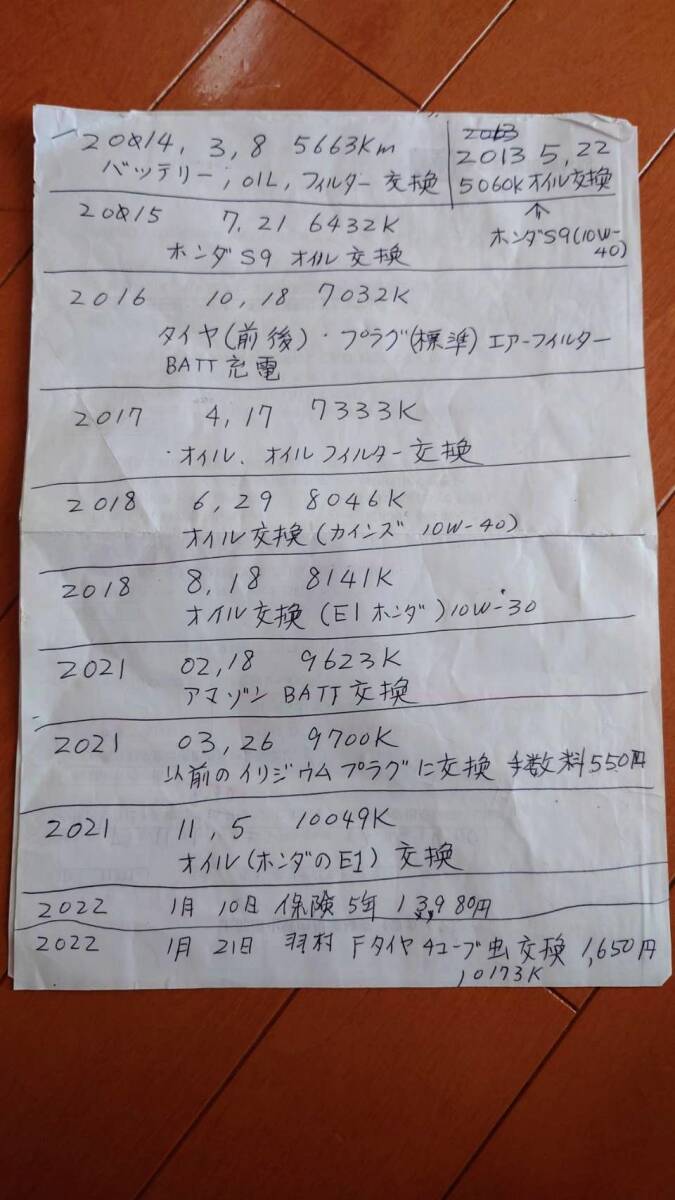 2014, 3, 8 5663Km
バッテリー, OIL, フィルター 交換
2013 5, 22
5060K オイル交換
⇑
ホンダS9(10W-
40)
2015 7, 21 6432K
ホンダ S9 オイル 交換
2016 10, 18 7032K
タイヤ(前後)・プラグ(標準) エアーフィルター
BATT 充電
2017 4, 17 7333K
・オイル、オイルフィルター 交換
2018 6, 29 8046K
オイル交換(カインズ 10W-40)
2018 8, 18 8141K
オイル交換 (E1ホンダ)10W-30
2021 02, 18 9623K
アマゾン BATT 交換
2021 03, 26 9700K
以前のイリジウムプラグに交換 手数料550円
2021 11, 5 10049K
オイル(ホンダのE1) 交換
2022 1月 10日 保険 5年 13,980円
2022 1月 21日 羽村 Fタイヤチューブ虫交換 1,650円
10173K